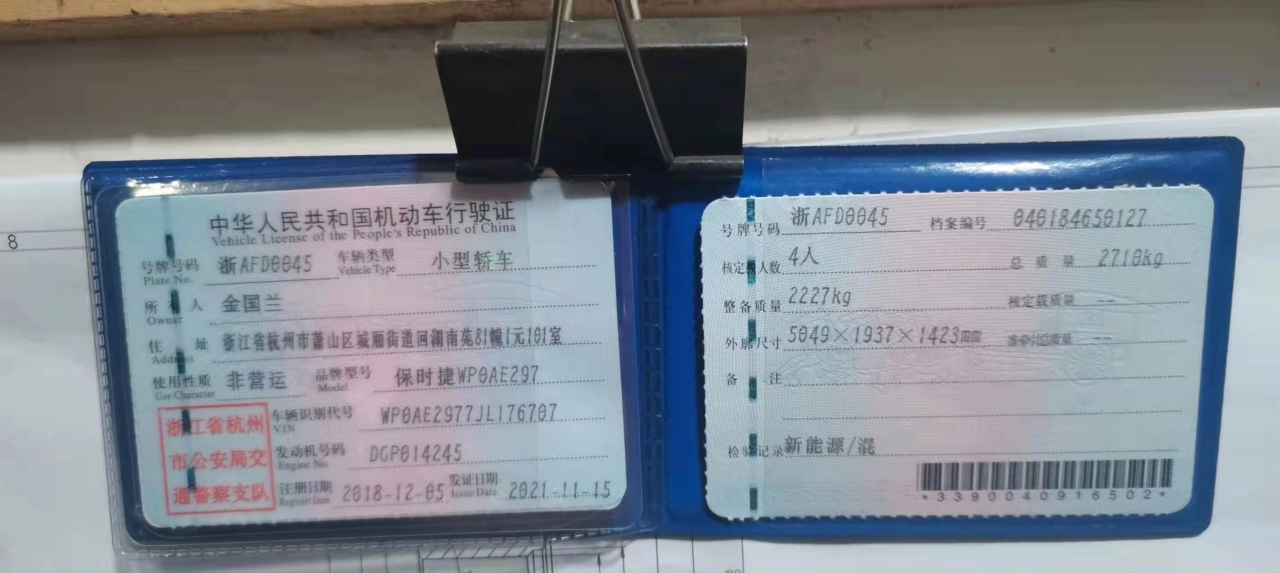 8
中华人民共和国机动车行驶证
Vehicle License of the People's Republic of China
号牌号码 浙AFD0045 车辆类型 小型轿车
Plate No. Vehicle Type
所 人 金国兰
Owner
住 址 浙江省杭州市萧山区城厢街道回澜南苑81幢1元101室
Address
使用性质 非营运 品牌型号 保时捷WP0AE297
Use Character Model
浙江省杭州
市公安局交
通警察支队
车辆识别代号 WP0AE2977JL176707
VIN
发动机号码 DGP014245
Engine No.
注册日期 2018-12-05 发证日期 2021-11-15
Register Date Issue Date
号牌号码 浙AFD0045 档案编号 040184650127
核定 人数 4人 总 质 量 2710kg
整备质量 2227kg 核定载质量 --
外廓尺寸 5049×1937×1423 准牵引总质量 --
备 注
检验记录 新能源/混
*3390040916502*